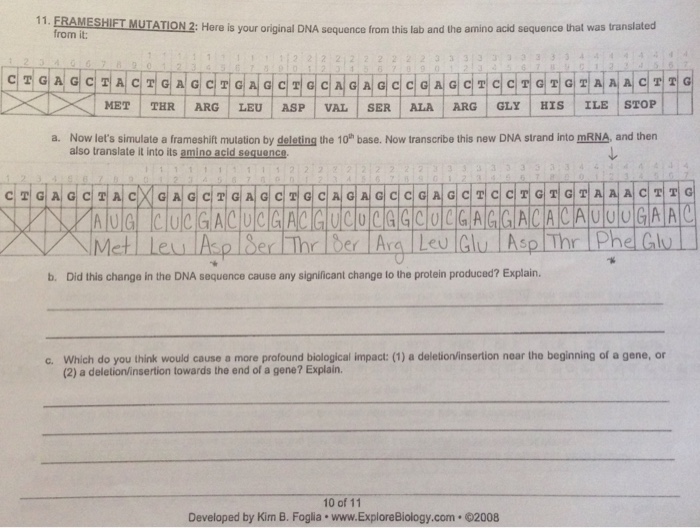 11. FRAMESHIFT MUTATION 2: Here is your original DNA sequence from this lab and the amino acid sequence that was translated
from it:
C T G A G C T A C T G A G C T G A G C T G C A G A G C C G A G C T C C T G T G T A A A C T T G
MET THR ARG LEU ASP VAL SER ALA ARG GLY HIS ILE STOP
a. Now let's simulate a frameshift mutation by deleting the 10th base. Now transcribe this new DNA strand into mRNA, and then
also translate it into its amino acid sequence.
C T G A G C T A C G A G C T G A G C T G C A G A G C C G A G C T C C T G T G T A A A C T T G
A U G C U C G A C U C G A C G U C U C G G C U C G A G G A C A C A U U U G A A C
Met Leu Asp Ser Thr Ser Arg Leu Glu Asp Thr Phe Glu
b. Did this change in the DNA sequence cause any significant change to the protein produced? Explain.
c. Which do you think would cause a more profound biological impact: (1) a deletion/insertion near the beginning of a gene, or
(2) a deletion/insertion towards the end of a gene? Explain.
10 of 11
Developed by Kim B. Foglia • www.ExploreBiology.com • ©2008